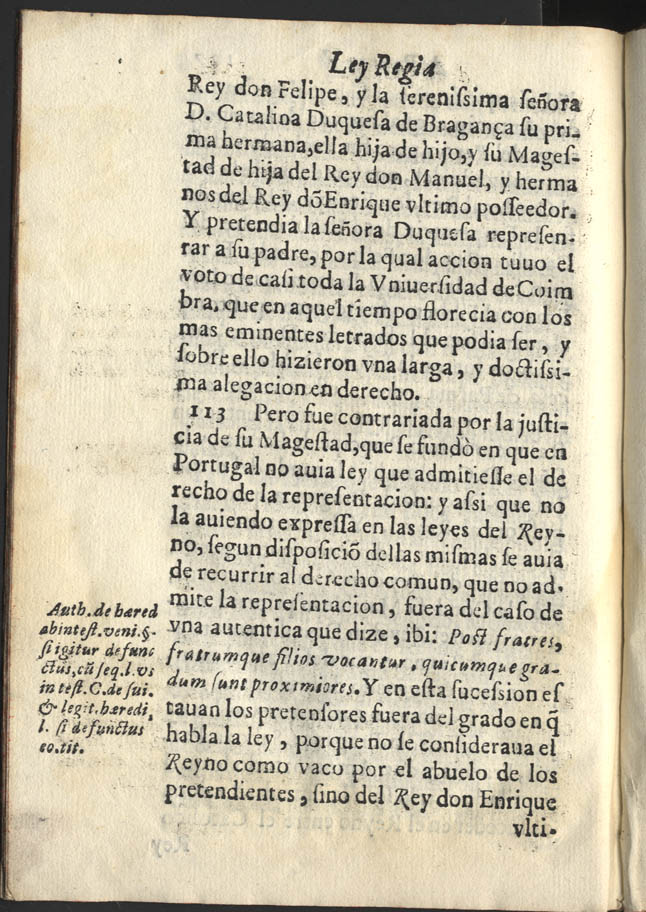 Ley Regia
Rey don Felipe, y la ſereniſsima ſeñora
D. Catalina Duqueſa de Bragança ſu pri-
ma hermana,ella hija de hijo,y ſu Mageſ-
tad de hija del Rey don Manuel, y herma
nos del Rey dõ Enrique vltimo poſſeedor.
Y pretendia la ſeñora Duqueſa repreſen-
rar a ſu padre, por la qual accion tuuo el
voto de caſi toda la Vniuerſidad de Coim
bra, que en aquel tiempo florecia con los
mas eminentes letrados que podia ſer, y
ſobre ello hizieron vna larga, y doctiſsi-
ma alegacion en derecho.
113 Pero fue contrariada por la juſti-
cia de ſu Mageſtad,que ſe fundò en que en
Portugal no auia ley que admitieſſe el de
recho de la repreſentacion: y aſsi que no
la auiendo expreſſa en las leyes del Rey-
no, ſegun diſpoſiciõ dellas miſmas ſe auia
de recurrir al derecho comun, que no ad-
mite la repreſentacion, fuera del caſo de
vna autentica que dize, ibi: Poſt fratres,
fratrumque filios vocantur, quicumque gra-
dum ſunt proximiores. Y en eſta ſuceſsion eſ
tauan los pretenſores fuera del grado en q̃
habla la ley, porque no ſe conſideraua el
Reyno como vaco por el abuelo de los
pretendientes, ſino del Rey don Enrique
vlti-
Auth. de hæred
abinteſt. veni. §.
ſi igitur defunc
ctus, cũ ſeq. l. vs
in teſt. C. de ſui.
& legit. hæredi,
l. ſi defunctus
eo. tit.